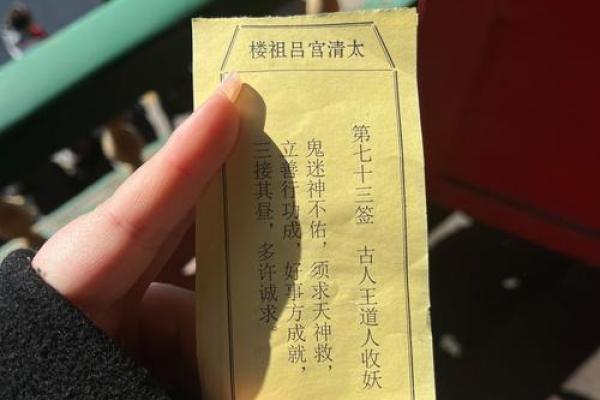 太清宫吕祖楼
第七十三签 古人王道人收妖
鬼迷神不佑，须求天神救，
立善行功成，好事方成就，
三接其昼，多许诚求。